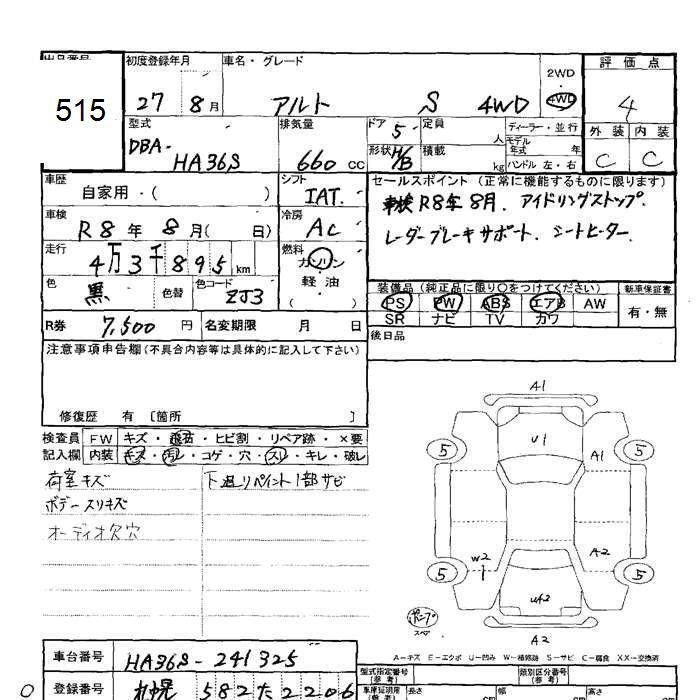 出品番号
515
初度登録年月
27 8月
車名・グレード
アルト S 4WD
2WD
4WD
評価点
4
外装 内装
C C
型式
DBA-
HA36S
排気量
660 CC
ドア 5
形状 H/B
定員 人
積載 kg
ディーラー・並行
モデル年式 年
ハンドル 左・右
車歴
自家用・( )
シフト
IAT.
セールスポイント (正常に機能するものに限ります)
車検R8年8月. アイドリングストップ.
レーダーブレーキサポート. シートヒーター.
車検
R8年 8月( 日)
冷房
AC
走行
4万3千895km
燃料
ガソリン
軽油
( )
色
黒
色替
色コード
ZJ3
装備品 (純正品に限り○をつけてください)
PS PW ABS エアB AW
SR ナビ TV カワ
新車保証書
有・無
R券 7,500円
名変期限 月 日
後日品
注意事項申告欄(不具合内容等は具体的に記入して下さい)
修復歴 有 〔箇所 〕
検査員
記入欄
FW キズ・飛石・ヒビ割・リペア跡・×要
内装 キズ・汚レ・コゲ・穴・スレ・キレ・破レ
荷室キズ
ボデースリキズ
オーディオ欠穴
下廻りペイント1部サビ
A1
U1
5 A1 5
W2 A2
5 5
A2
スペア
A−キズ E−エクボ U−凹み W−補修跡 S−サビ C−腐食 XX−交換済
車台番号
HA36S-241325
登録番号
札幌 582 た 2206
型式指定番号
(参考)
類別区分番号
(参考)
車庫証明用
(参考)
長さ
幅
高さ